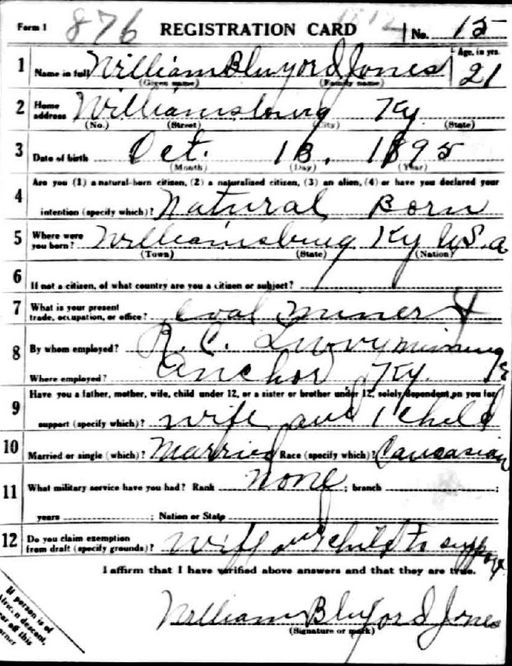 Form 1 876 REGISTRATION CARD No. 15
1 Name in full William Bluford Jones Age, in yrs. 21
(Given name) (Family name)
2 Home address Williamsburg Ky
(No.) (Street) (City) (State)
3 Date of birth Oct. 13, 1895
(Month) (Day) (Year)
4 Are you (1) a natural-born citizen, (2) a naturalized citizen, (3) an alien, (4) or have you declared your
intention (specify which)? Natural Born
5 Where were you born? Williamsburg Ky U.S.a
(Town) (State) (Nation)
6 If not a citizen, of what country are you a citizen or subject?
7 What is your present trade, occupation, or office? Coal miner
8 By whom employed? R. C. mining
Where employed? Anchor Ky.
9 Have you a father, mother, wife, child under 12, or a sister or brother under 12, solely dependent on you for
support (specify which)? wife and 1 child
10 Married or single (which)? Married Race (specify which)? Caucasian
11 What military service have you had? Rank None ; branch ;
years ; Nation or State
12 Do you claim exemption from draft (specify grounds)? Wife and child to support
I affirm that I have verified above answers and that they are true.
William Bluford Jones
(Signature or mark)
If person is of
African descent,
corner